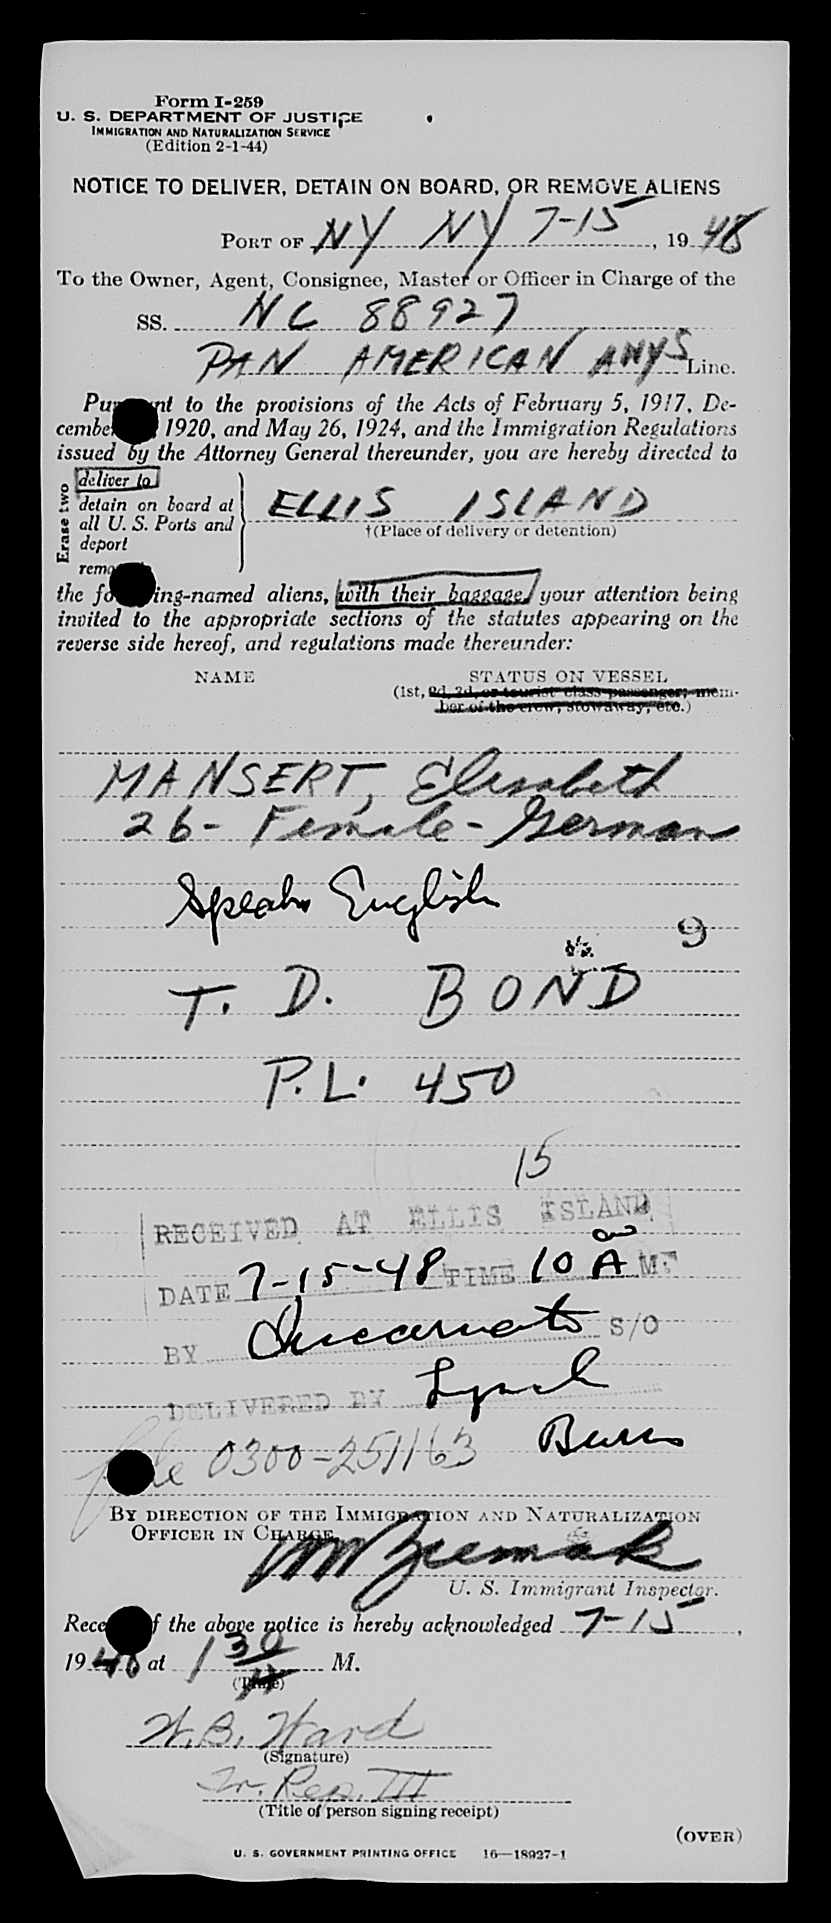 Form I-259
U. S. DEPARTMENT OF JUSTICE
IMMIGRATION AND NATURALIZATION SERVICE
(Edition 2-1-44)
NOTICE TO DELIVER, DETAIN ON BOARD, OR REMOVE ALIENS
PORT OF NY NY 7-15, 1948
To the Owner, Agent, Consignee, Master or Officer in Charge of the
SS. NC 88927
PAN AMERICAN AWYS Line.
Pursuant to the provisions of the Acts of February 5, 1917, De-
cember 1920, and May 26, 1924, and the Immigration Regulations
issued by the Attorney General thereunder, you are hereby directed to
Erase two
deliver to
detain on board at
all U. S. Ports and
deport
remove
ELLIS ISLAND
†(Place of delivery or detention)
the following-named aliens, with their baggage, your attention being
invited to the appropriate sections of the statutes appearing on the
reverse side hereof, and regulations made thereunder:
NAME STATUS ON VESSEL
(1st, 2d, 3d, or tourist class passenger; mem-
ber of the crew, stowaway, etc.)
MANSERT, Elisabeth
26 - Female - German
Speaks English
9
T. D. BOND
P.L. 450
15
RECEIVED AT ELLIS ISLAND
DATE 7-15-48 TIME 10 A M
BY S/O
DELIVERED BY Lynch
Burns
file 0300-251163
BY DIRECTION OF THE IMMIGRATION AND NATURALIZATION
OFFICER IN CHARGE
U. S. Immigrant Inspector.
Receipt of the above notice is hereby acknowledged 7-15,
1948 at 1 30 M.
(Time)
W. B. Ward
(Signature)
Tr. Rep. III
(Title of person signing receipt)
(OVER)
U. S. GOVERNMENT PRINTING OFFICE 16—18927-1